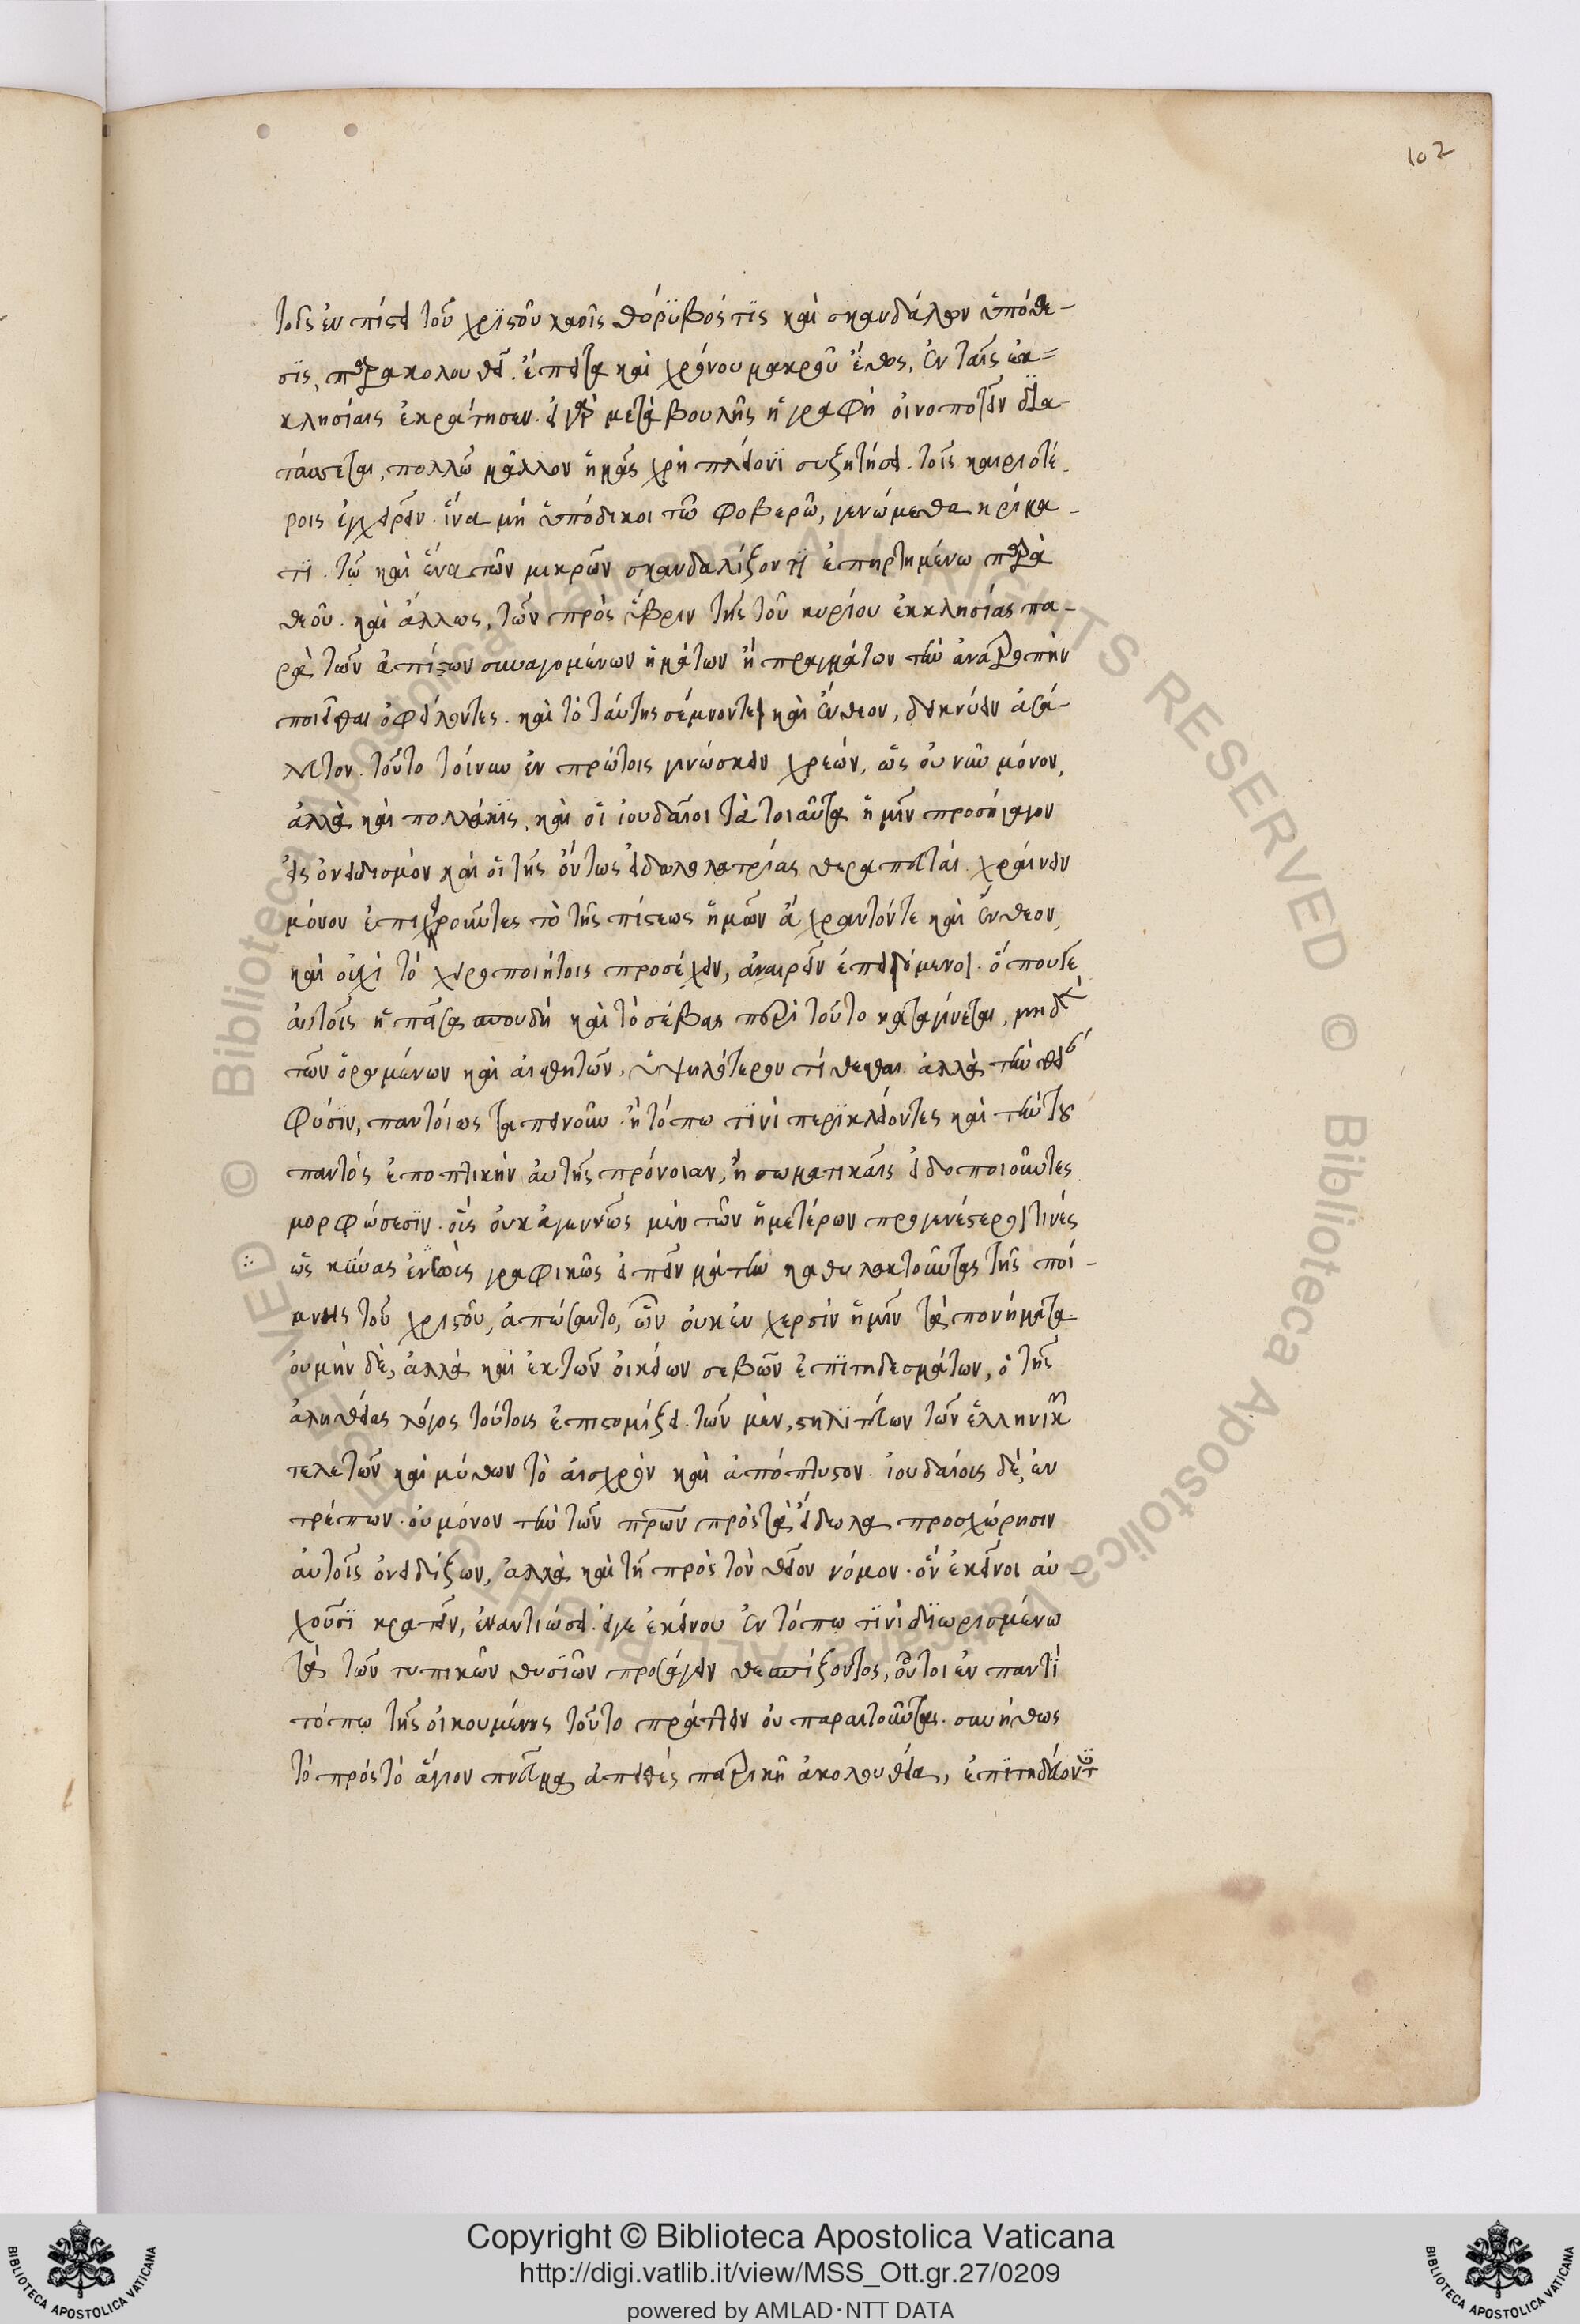 102
τοῖς ἐν πίστει τοῦ χριστοῦ λαοῖς θόρυβός τις καὶ σκανδάλων ὑπόθε-
σις, παρακολουθεῖ. ἔπειτα καὶ χρόνου μακροῦ ἔθος, ἐν ταῖς ἐκ-
κλησίαις ἐκράτησεν. εἰ γὰρ μετὰ βουλῆς ἡ γραφὴ οἰνοποτεῖν δια-
τάσσεται, πολλῶ μᾶλλον ἡμᾶς χρὴ πλείονι συζητήσει. τοῖς καιριοτέ-
ροις ἐγχειρεῖν. ἵνα μὴ ὑπόδικοι τῶ φοβερῶ, γενώμεθα κρίμα-
τι. τῶ καὶ ἕνα τῶν μικρῶν σκανδαλίζοντι ἐπηρτημένω παρὰ
θεοῦ. καὶ ἄλλως, τῶν πρὸς ὕβριν τῆς τοῦ κυρίου ἐκκλησίας πα-
ρὰ τῶν ἀπίστων συναγομένων ῥημάτων ἢ πραγμάτων τὴν ἀνατροπὴν
ποιεῖσθαι ὀφείλοντες. καὶ τὸ ταύτης σέμνόν τε καὶ ἔνθεον, δεικνύειν ἀσά-
λευτον. τοῦτο τοίνυν ἐν πρώτοις γινώσκειν χρεών, ὡς οὐ νῦν μόνον,
ἀλλὰ καὶ πολλάκις, καὶ οἱ ἰουδαῖοι τὰ τοιαῦτα ἡμῖν προσήγαγον
εἰς ὀνειδισμὸν καὶ οἱ τῆς ὄντως εἰδωλολατρίας θεραπευταί. χραίνειν
μόνον ἐπιχειροῦντες τὸ τῆς πίστεως ἡμῶν ἄχραντόν τε καὶ ἔνθεον,
καὶ οὐχὶ τὸ χειροποιήτοις προσέχειν, ἀναιρεῖν ἐπειγόμενοι. ὅπουγε
αὐτοῖς ἡ πᾶσα σπουδὴ καὶ τὸ σέβας περὶ τοῦτο καταγίνεται, μηδὲν
τῶν ὁρωμένων καὶ αἰσθητῶν, ὑψηλότερον τίθεσθαι. ἀλλὰ τὴν θείαν
φύσιν, παντοίως ταπεινοῦν. ἢ τόπω τινὶ περικλείοντες καὶ τὴν τοῦ
παντός ἐποπτικὴν αὐτῆς πρόνοιαν, ἢ σωματικαῖς εἰδοποιοῦντες
μορφώσεσιν. οἷς οὐκ ἀγεννῶς μὲν τῶν ἡμετέρων προγενέστεροι τινές
ὡς κύνας ἐντοις γραφικῶς εἰπεῖν μάτην καθυλακτοῦντας τῆς ποί-
μνης τοῦ χριστοῦ, ἀπώσαντο, ὧν οὐκ ἐν χερσὶν ἡμῖν τὰ πονήματα
οὐ μὴν δὲ, ἀλλὰ καὶ ἐκ τῶν οἰκείων σεβῶν ἐπιτηδευμάτων, ὁ τῆς
ἀληθείας λόγος τούτους ἐπιστομίζει. τῶν μὲν, στηλιτεύων τῶν ἑλληνικῶν
τελετῶν καὶ μύθων τὸ αἰσχρὸν καὶ ἀπόπτυστον. ἰουδαίους δὲ, ἐν
τρέπων. οὐ μόνον τὴν τῶν πρων πρὸς τὰ εἴδωλα προσχώρησιν
αὐτοῖς ὀνειδίζων, ἀλλὰ καὶ τῆ πρὸς τὸν θεῖον νόμον. ὃν ἐκεῖνοι αὐ-
χοῦσι κρατεῖν, ἐναντιώσει. εἴγε ἐκείνου ἐν τόπω τινὶ διωρισμένω
τὰ τῶν τυπικῶν θυσιῶν προσάγειν θεσπίζοντος, οὗτοι ἐν παντὶ
τόπω τῆς οἰκουμένης τοῦτο πράττειν οὐ παραιτοῦνται. συνήθως
τὸ πρὸς τὸ ἅγιον πνεῦμα ἀπειθὲς πατρικῆ ἀκολουθεία, ἐπιτηδεύοντες
Copyright © Biblioteca Apostolica Vaticana
http://digi.vatlib.it/view/MSS_Ott.gr.27/0209
powered by AMLAD·NTT DATA